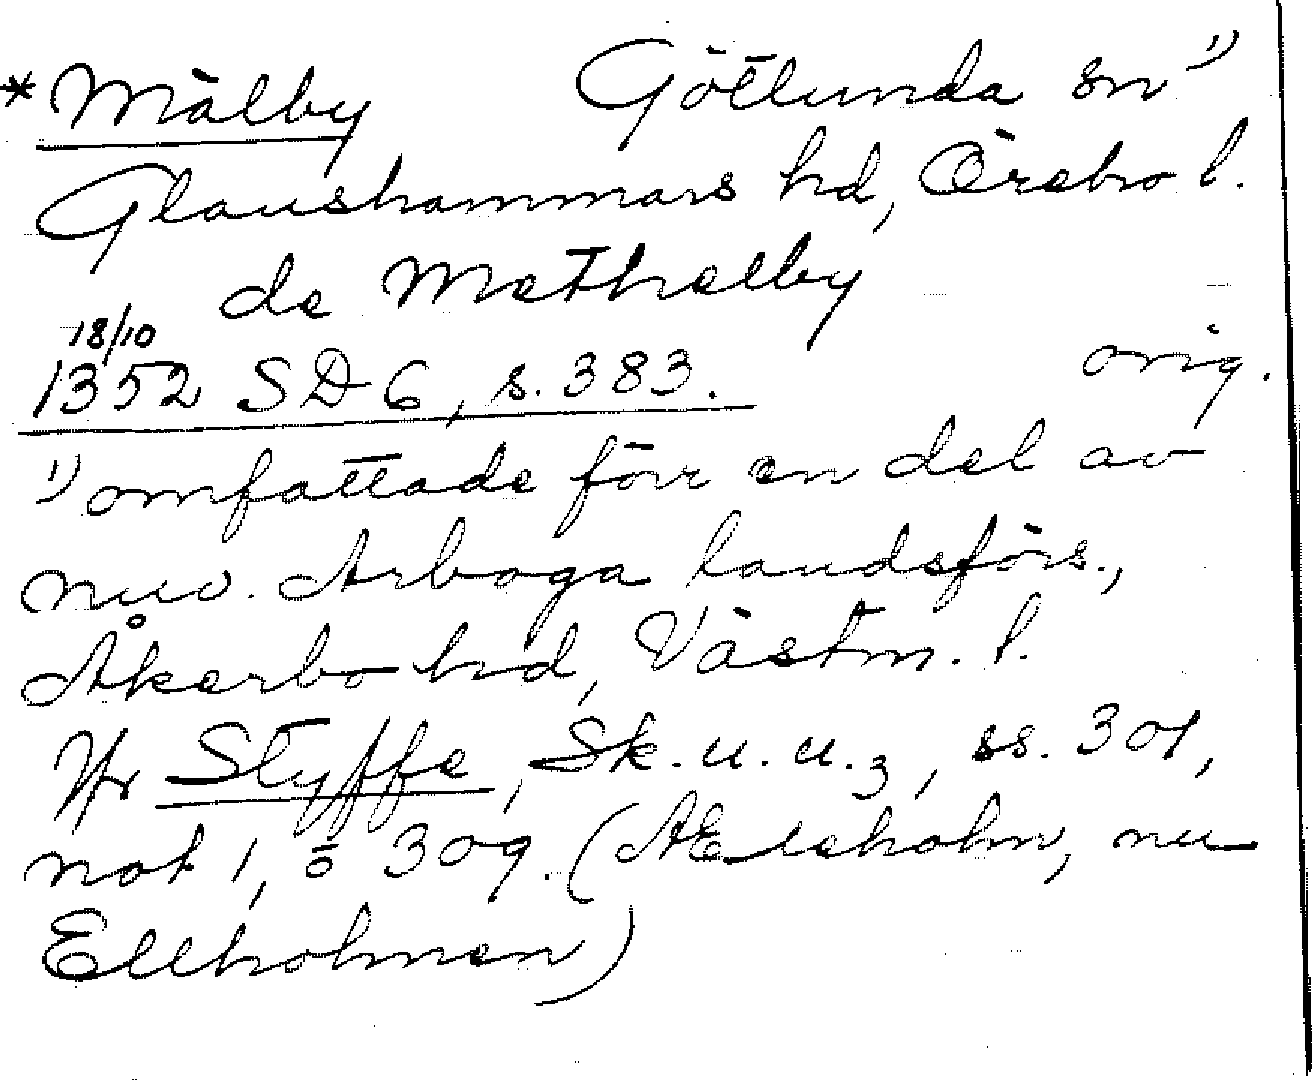 *Mälby Götlunda sn 1)
Glanshammars hd, Örebro l.
de Methelby
18/10
1352 SD 6, s. 383. orig.
1) omfattade förr en del av
nuv. Arboga landsförs.,
Åkerbo hd, Västm. l.
Jfr Styffe, Sk. u. u.3, ss. 301,
not 1, o 309. (Æleholm, nu
Ellholmen)